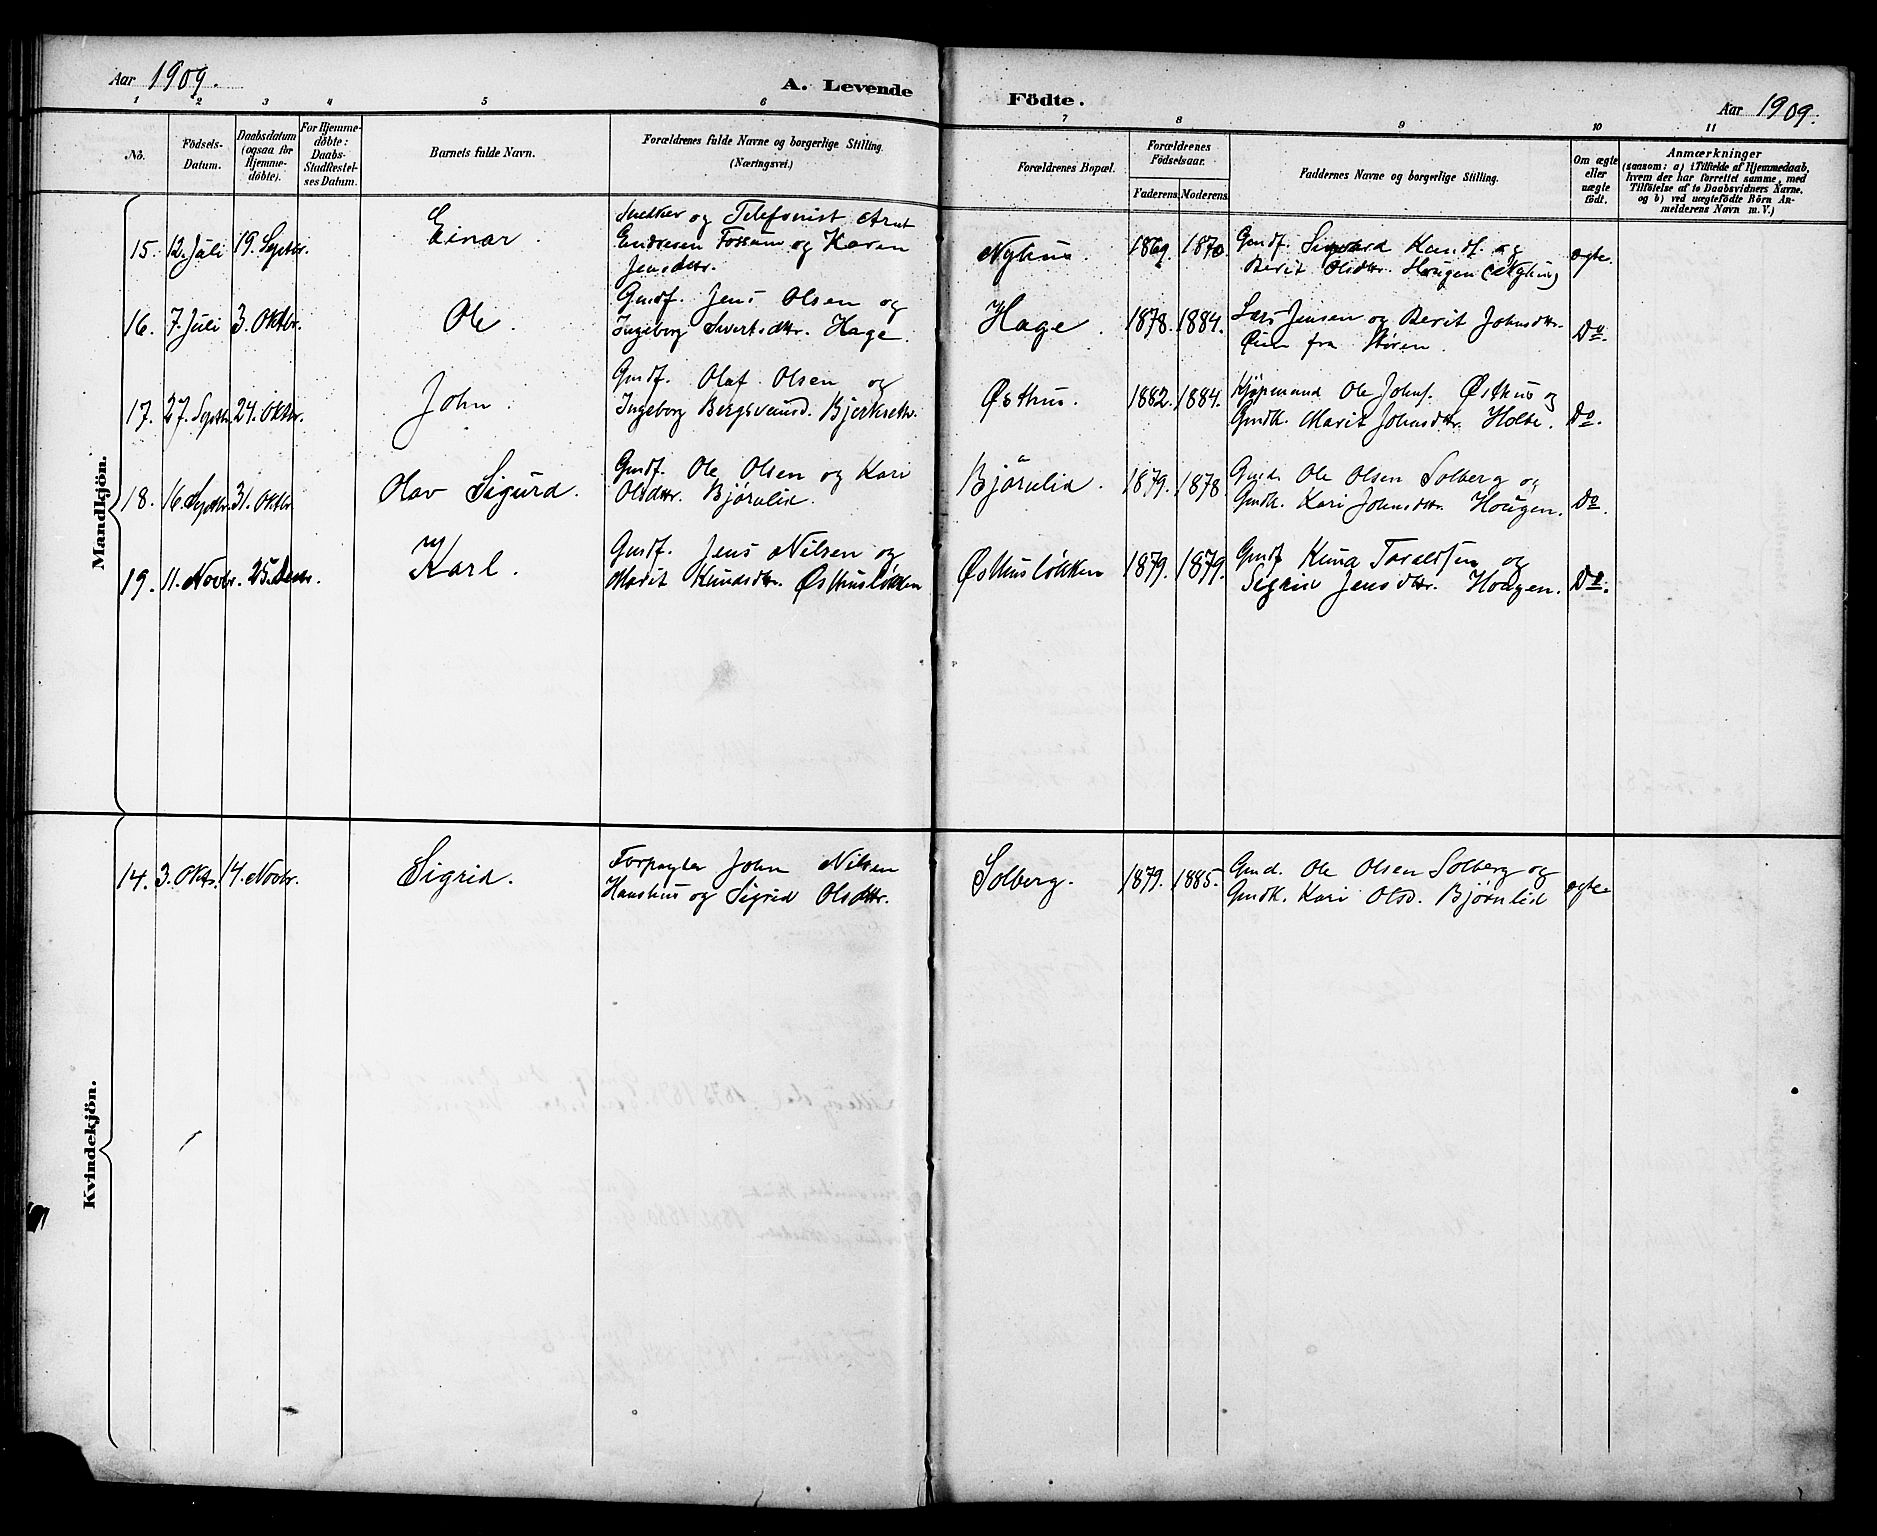 Aar 1909.
A. Levende Födte.
Aar 1909.
1 2 3 4 5 6 7 8 9 10 11
No.
Födsels-
Datum.
Daabsdatum
(ogsaa for
Hjemme-
döbte).
For Hjemme-
döbte:
Daabs-
Stadfæstel-
ses Datum.
Barnets fulde Navn.
Forældrenes fulde Navne og borgerlige Stilling.
(Næringsvei.)
Forældrenes Bopæl.
Forældrenes
Födselsaar.
Faderens. Moderens.
Faddernes Navne og borgerlige Stilling.
Om ægte
eller
uægte
födt.
Anmærkninger
(saasom: a) i Tilfælde af Hjemmedaab,
hvem der har forrettet samme, med
Tilföielse af to Daabsvidners Navne.
og b) ved uægtefödte Börn An-
melderens Navn m. V.)
Mandkjön.
15. 12. Juli 19. Septbr. Einar.
Snedker og Telefonist Arnt
Endresen Fossum og Karen
Jensdtr.
Nyhus. 1869. 1870.
Gmdf. Sivard Knudf. og
Berit Olsdtr. Hougen (Nyhus)
ægte.
16. 7. Juli 3. Oktbr. Ole.
Gmdf. Jens Olsen og
Ingeborg Sivertsdtr. Hage.
Hage. 1878. 1884.
Lars Jensen og Berit Johnsdtr.
Øien fra Støren.
Do.
17. 27. Septbr. 24. Oktbr. John.
Gmdf. Olaf Olsen og
Ingeborg Bergsveinsd. Bjerkseth.
Østhus. 1882. 1884.
Kjøpmand Ole Johnf. Østhus og
Gmdk. Marit Johnsdtr. Holte.
Do.
18. 16. Septbr. 31. Oktbr. Olav Sigurd.
Gmdf. Ole Olsen og Kari
Olsdtr. Bjørnlid.
Bjørnlid. 1879. 1878
Gmd. Ole Olsen Solberg og
Gmdk. Kari Johnsdtr. Hougen.
Do.
19. 11. Novbr. 25. Decbr. Karl.
Gmdf. Jens Nilsen og
Marit Knudsdtr. Østhusløkken
Østhusløkken 1879. 1879.
Gmdf Knud Taraldsen og
Sigrid Jensdtr. Hougen.
Do.
Kvindekjön.
14. 3. Okt. 14. Novbr. Sigrid.
Forpagter John Nilsen
Haukhus og Sigrid Olsdtr.
Solberg. 1879. 1885.
Gmd. Ole Olsen Solberg og
Gmdk. Kari Olsd. Bjørnlid
ægte